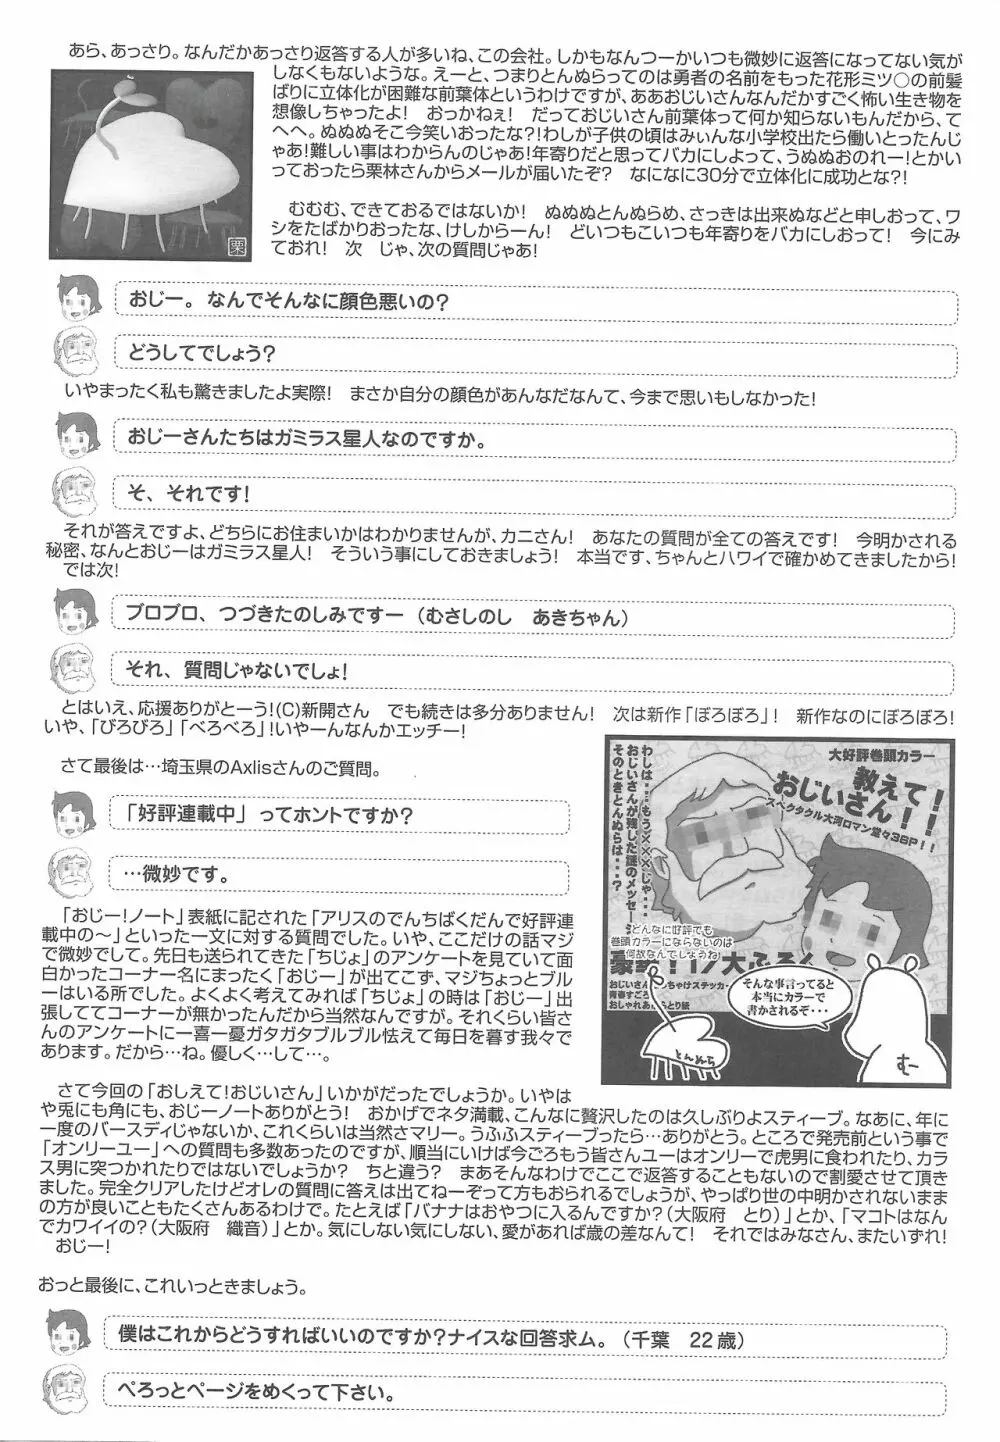 あら、あっさり。なんだかあっさり返答する人が多いね、この会社。しかもなんつーかいつも微妙に返答になってない気が
しなくもないような。えーと、つまりとんぬらってのは勇者の名前をもった花形ミツ○の前髪
ばりに立体化が困難な前葉体というわけですが、ああおじいさんなんだかすごく怖い生き物を
想像しちゃったよ!　おっかねぇ!　だっておじいさん前葉体って何か知らないもんだから、て
へへ。ぬぬぬそこ今笑いおったな?!わしが子供の頃はみぃんな小学校出たら働いとったんじ
ゃあ!難しい事はわからんのじゃあ!年寄りだと思ってバカにしよって、うぬぬおのれー!とかい
っておったら栗林さんからメールが届いたぞ?　なになに30分で立体化に成功とな?!
栗
むむむ、できておるではないか!　ぬぬぬとんぬらめ、さっきは出来ぬなどと申しおって、ワ
シをたばかりおったな、けしからーん!　どいつもこいつも年寄りをバカにしおって!　今にみ
ておれ!　次　じゃ、次の質問じゃあ!
おじー。なんでそんなに顔色悪いの?
どうしてでしょう?
いやまったく私も驚きましたよ実際!　まさか自分の顔色があんなだなんて、今まで思いもしなかった!
おじーさんたちはガミラス星人なのですか。
そ、それです!
それが答えですよ、どちらにお住まいかはわかりませんが、カニさん!　あなたの質問が全ての答えです!　今明かされる
秘密、なんとおじーはガミラス星人!　そういう事にしておきましょう!　本当です、ちゃんとハワイで確かめてきましたから!
では次!
ブロブロ、つづきたのしみですー（むさしのし　あきちゃん）
それ、質問じゃないでしょ!
とはいえ、応援ありがとーう!(C)新開さん　でも続きは多分ありません!　次は新作「ぼろぼろ」!　新作なのにぼろぼろ!
いや、「びろびろ」「べろべろ」!いやーんなんかエッチー!
さて最後は…埼玉県のAxlisさんのご質問。
「好評連載中」ってホントですか?
…微妙です。
「おじー!ノート」表紙に記された「アリスのでんちばくだんで好評連
載中の〜」といった一文に対する質問でした。いや、ここだけの話マジ
で微妙でして。先日も送られてきた「ちじょ」のアンケートを見ていて面
白かったコーナー名にまったく「おじー」が出てこず、マジちょっとブル
ーはいる所でした。よくよく考えてみれば「ちじょ」の時は「おじー」出
張しててコーナーが無かったんだから当然なんですが。それくらい皆さ
んのアンケートに一喜一憂ガタガタブルブル怯えて毎日を暮す我々で
あります。だから…ね。優しく…して…。
大好評巻頭カラー
教えて!
おじいさん!!
スペクタクル大河ロマン堂々38P!!
わしは…もう×××じゃ…
おじいさんが残した謎のメッセージ
そのときとんぬらは…?
どんなに好評でも
巻頭カラーにならないのは
何故なんでしょうね
そんな事言ってると
本当にカラーで
書かされるぞ…
とんぬら
むー
さて今回の「おしえて!おじいさん」いかがだったでしょうか。いやは
や兎にも角にも、おじーノートありがとう!　おかげでネタ満載、こんなに贅沢したのは久しぶりよスティーブ。なあに、年に
一度のバースディじゃないか、これくらいは当然さマリー。うふふスティーブったら…ありがとう。ところで発売前という事で
「オンリーユー」への質問も多数あったのですが、順当にいけば今ごろもう皆さんユーはオンリーで虎男に食われたり、カラ
ス男に突つかれたりではないでしょうか?　ちと違う?　まあそんなわけでここで返答することもないので割愛させて頂き
ました。完全クリアしたけどオレの質問に答えは出てねーぞって方もおられるでしょうが、やっぱり世の中明かされないまま
の方が良いこともたくさんあるわけで。たとえば「バナナはおやつに入るんですか?（大阪府　とり）」とか、「マコトはなん
でカワイイの?（大阪府　織音）」とか。気にしない気にしない、愛があれば歳の差なんて!　それではみなさん、またいずれ!
おじー!
おっと最後に、これいっときましょう。
僕はこれからどうすればいいのですか?ナイスな回答求ム。（千葉　22歳）
ぺろっとページをめくって下さい。